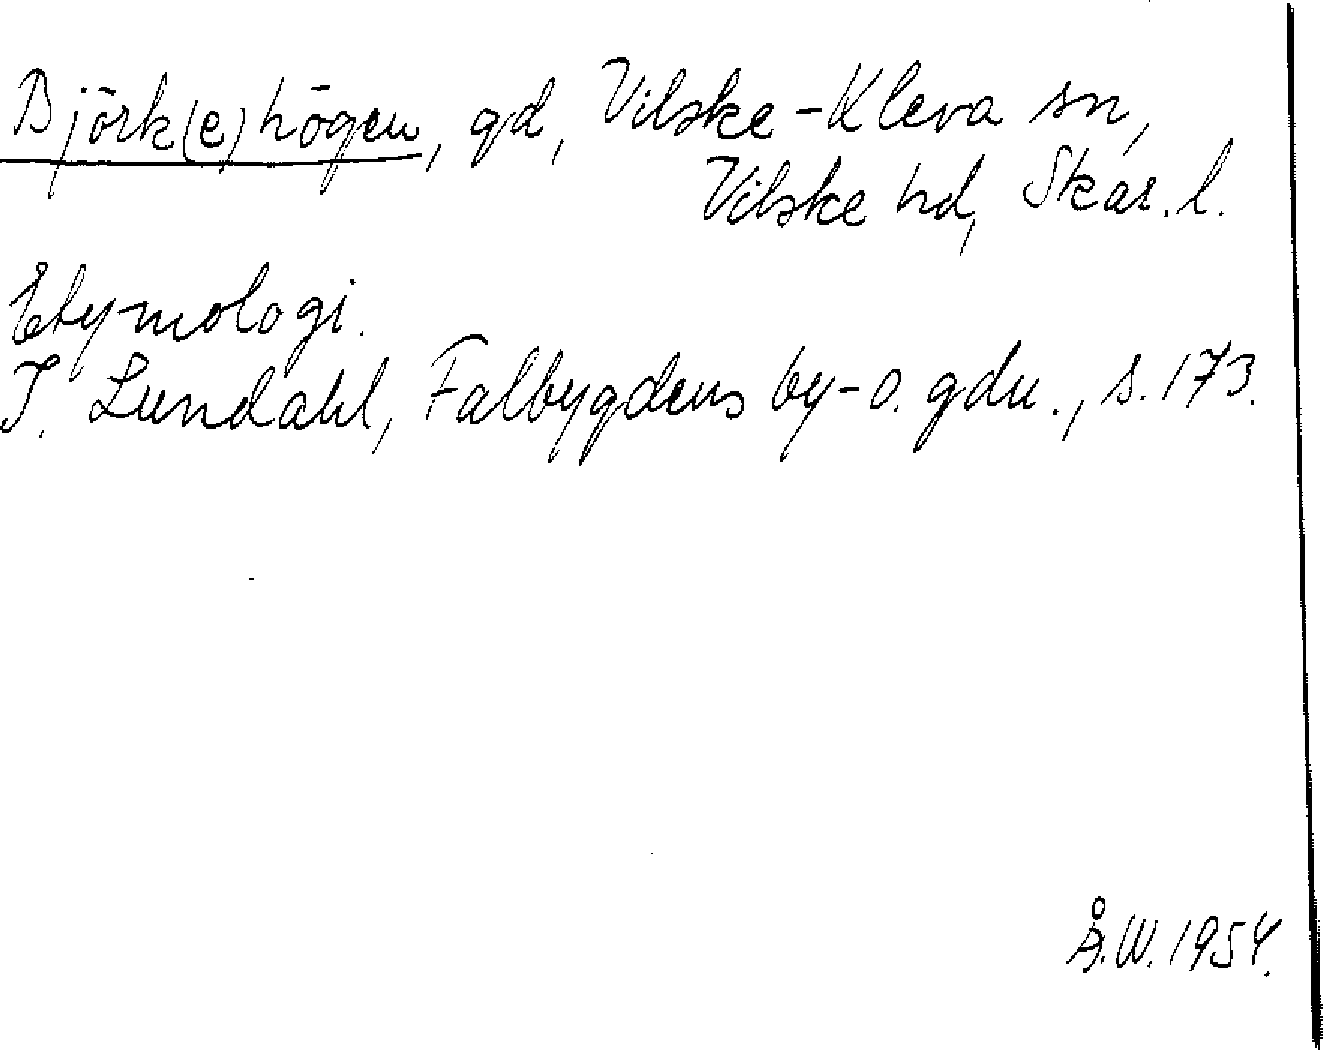 Björk(e)högen, gd, Vilske-Kleva sn,
Vilske hd, Skar. l.
Etymologi.
I. Lundahl, Falbygdens by- o. gdn., s. 173.
Å.W. 1954.